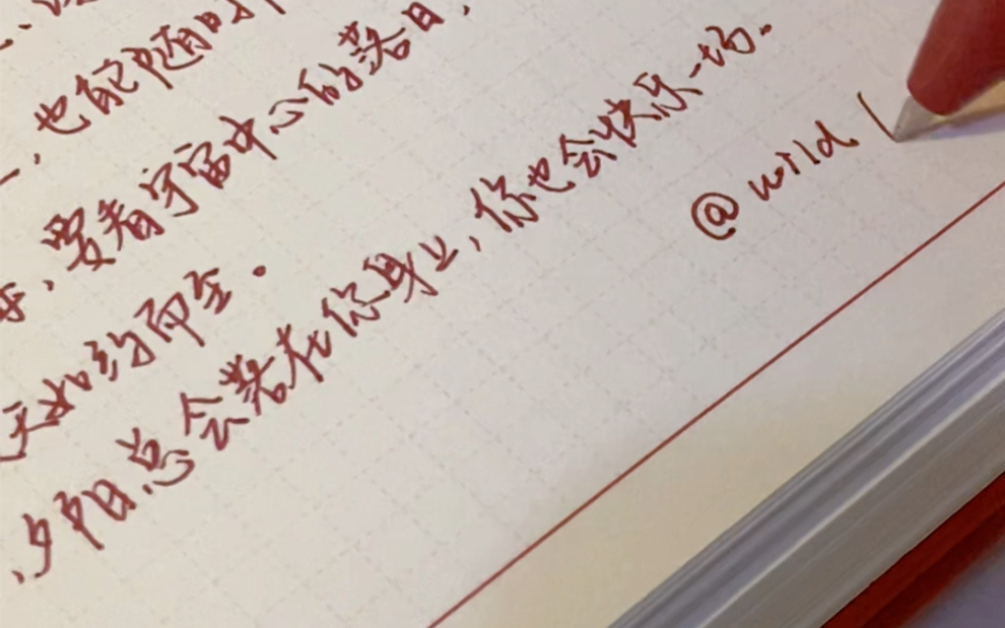 ，也能随时
，要看宇宙中心的落日，
天如约而至。
，夕阳总会落在你身上，你也会快乐一场.
@ wild